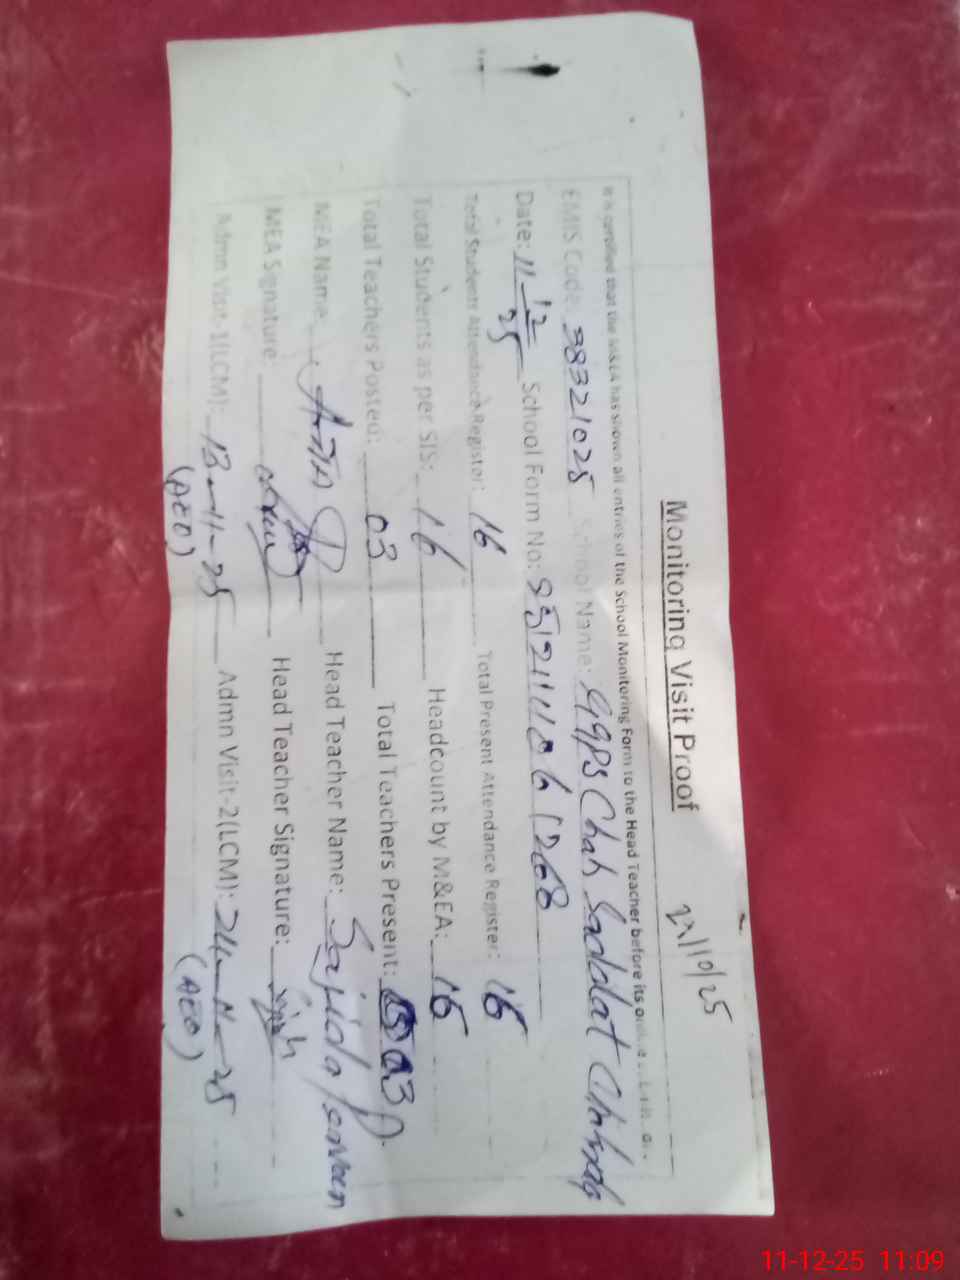 Monitoring Visit Proof
It is certified that the M&EA has shown all entries of the School Monitoring Form to the Head Teacher before its
EMIS Code: 38321025 School Name: GGPS Chah Saddat
Date: 11-12-25 School Form No:
Total Students Attendance Register: 16 Total Present Attendance Register: 16
Total Students as per SIS: 16 Headcount by M&EA: 16
Total Teachers Posted: 03 Total Teachers Present: 03
MEA Name: Head Teacher Name: Sajida
MEA Signature: Head Teacher Signature:
Admn Visit-1(LCM): 13-11-25 Admn Visit-2(LCM): 24-11-25
(AEO) (AEO)
11-12-25 11:09